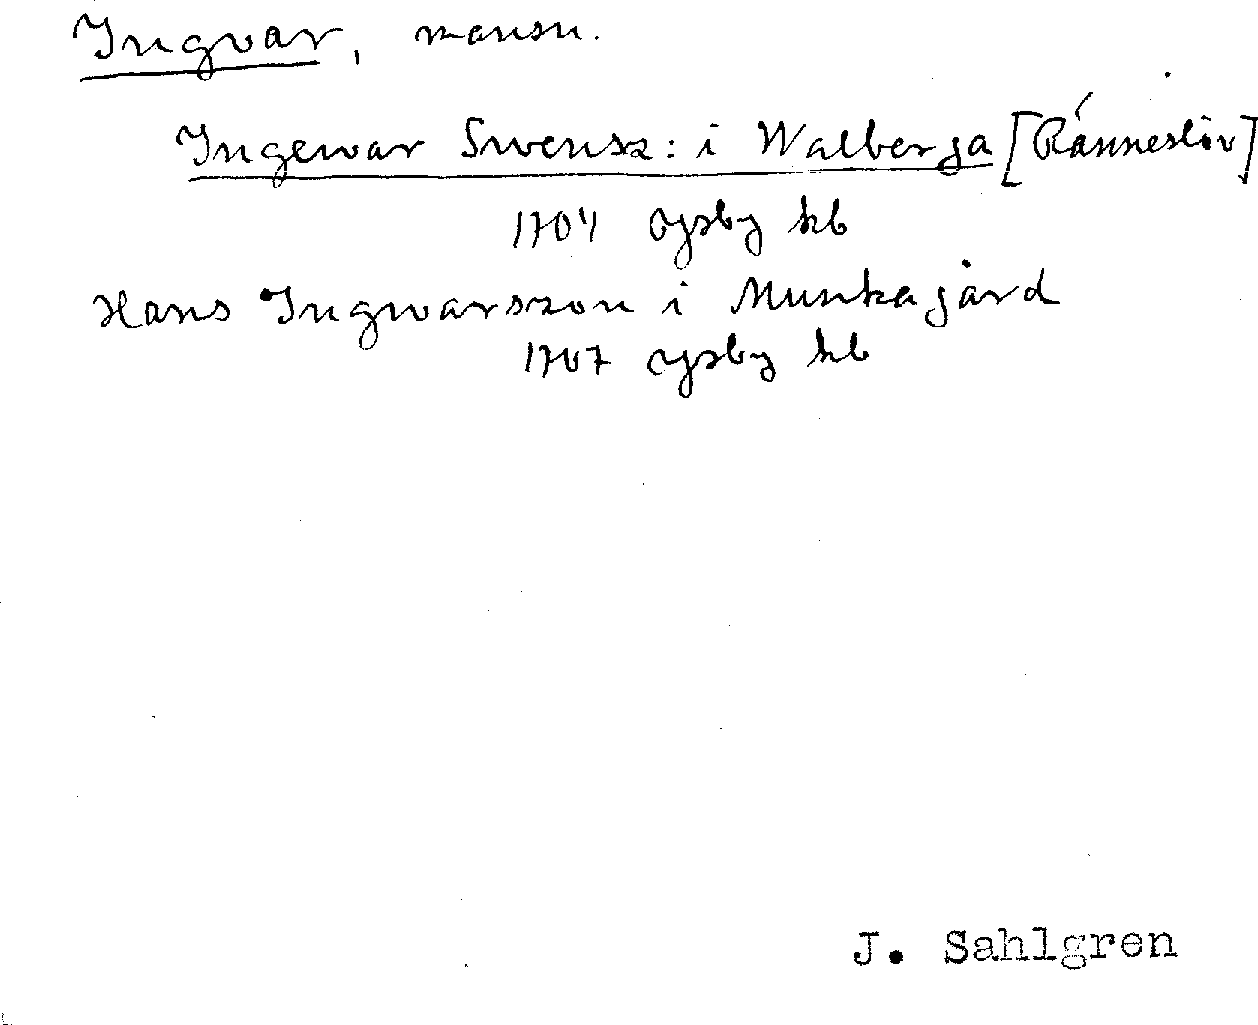 Ingvar, mansn.
Ingewar Swensz: i Walberga [Ränneslöv]
1704 Ysby kb
Hans Ingwarszon i Munkagård
1707 Ysby kb
J. Sahlgren